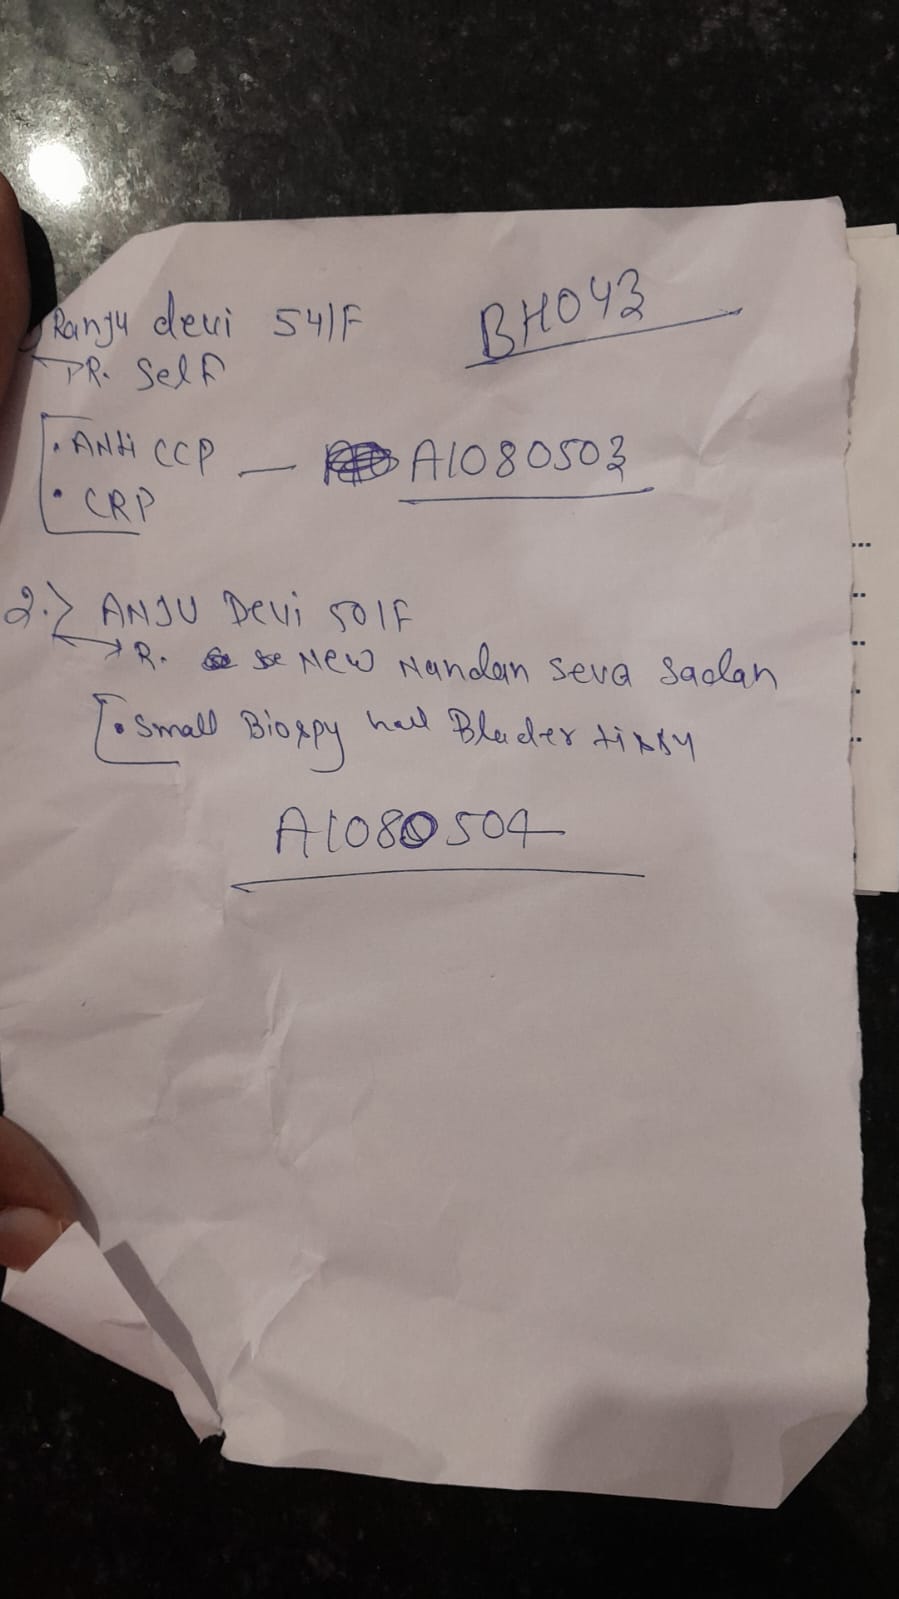 Ranju devi 54/F
BH043
DR. Self
• Anti CCP — A1080503
• CRP
2.> ANJU Devi 50/F
R. New Nandan Seva Sadan
• Small Biospy Blader tissy
A1080504